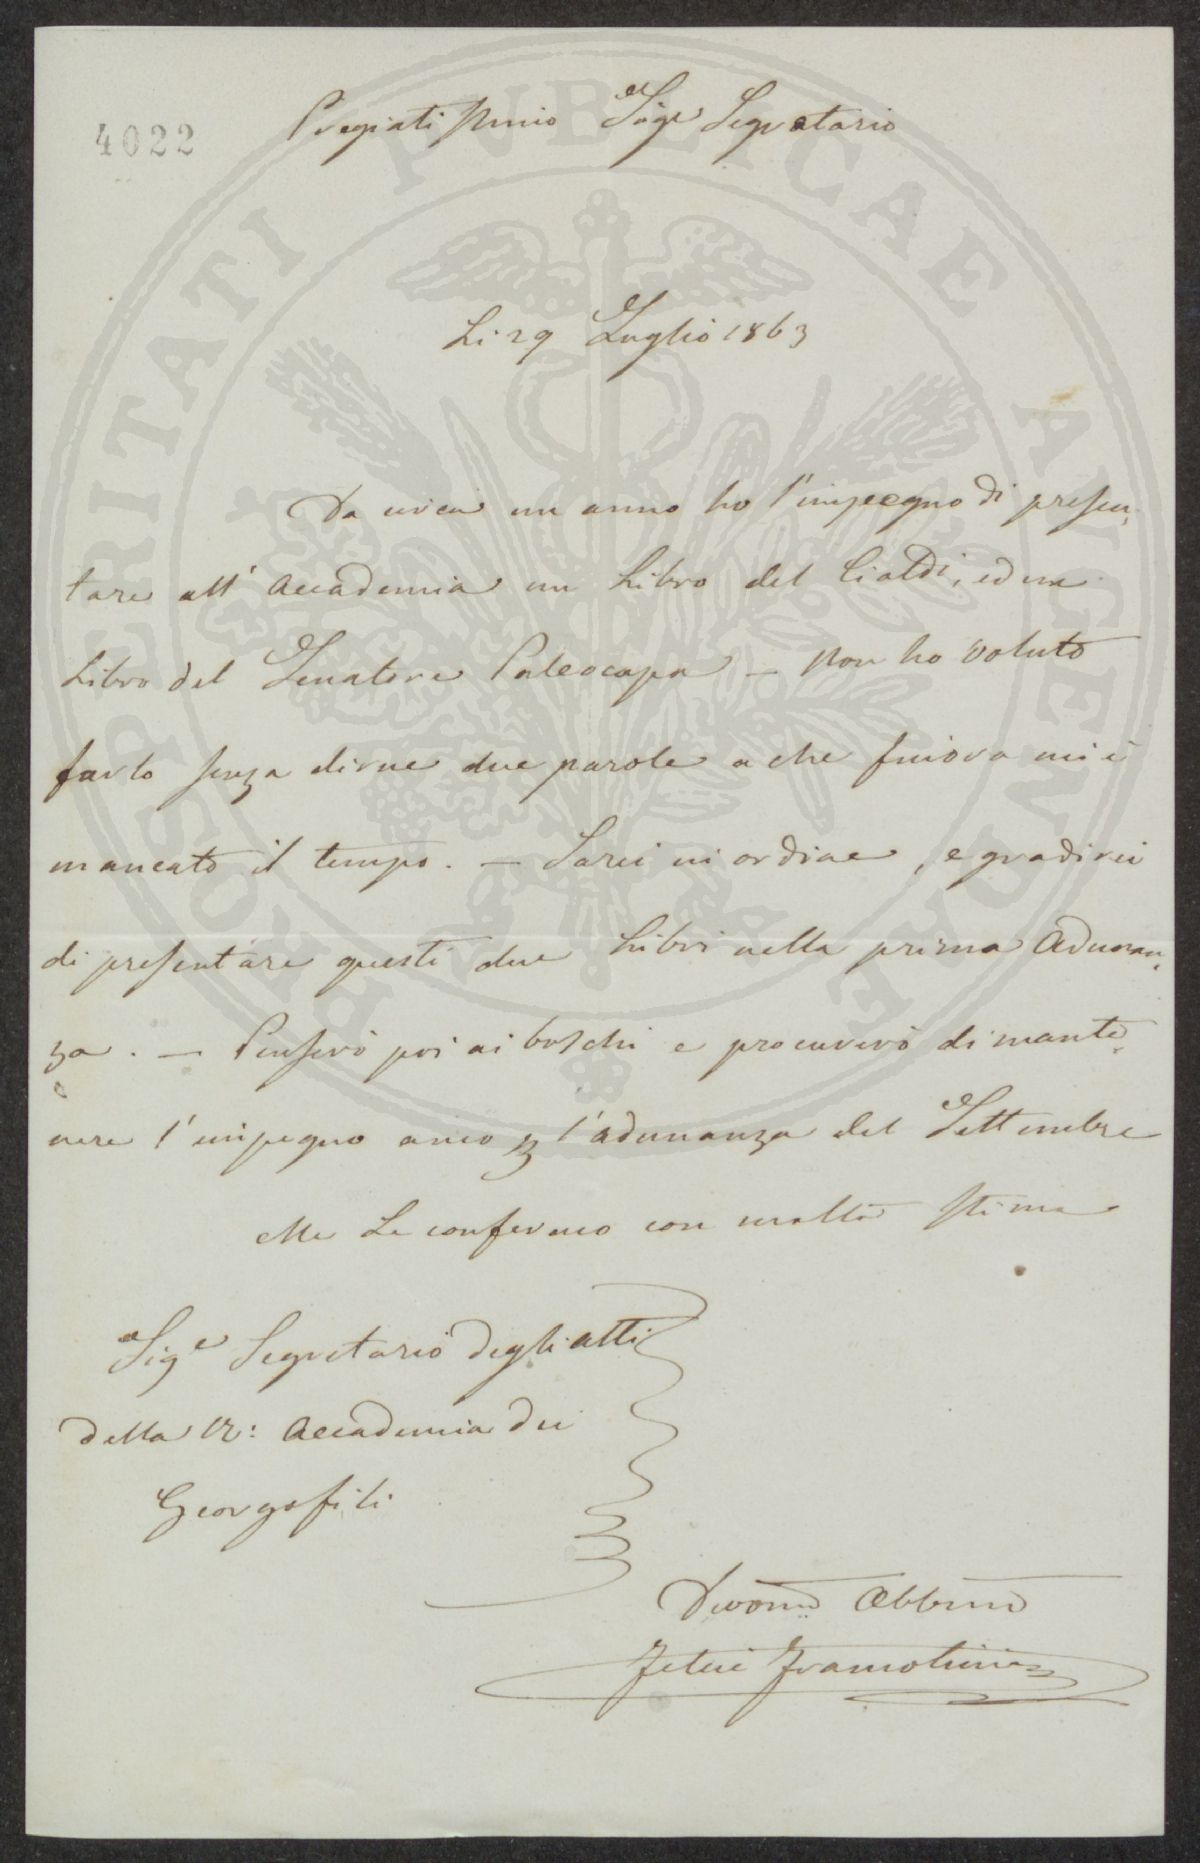 4022
Pregiatissimo Sigr Segretario
Li 29 Luglio 1863
Da circa un anno ho l'impegno di presen,
tare all' Accademia un Libro del Cialdi, ed un
Libro del Senatore Paleocapa — Non ho voluto
farlo senza dirne due parole a che finora mi è
mancato il tempo. — Sarei in ordine, e gradirei
di presentare questi due Libri nella prima Adunan,
za. — Penserò poi ai boschi e procurerò di mante,
nere l'impegno anco p l'adunanza del Settembre
Me Le confermo con molta stima
Sigre Segretario degli atti
della R: Accademia dei
Georgofili
Devotmo Obbmo
Felice Francolini
PROSPERITATI PUBLICAE AUGENDAE